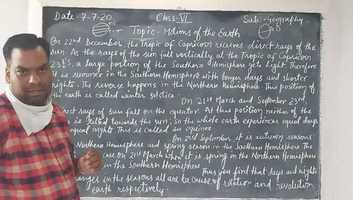 Date-7-7-20 Class-VI Sub:-Geography
Topic-Motions of the Earth
On 22nd December, the Tropic of Capricorn receives direct rays of the
sun. As the rays of the sun fall vertically at the Tropic of Capricorn
23½°S, a large portion of the Southern Hemisphere gets light. Therefore
it is summer in the Southern Hemisphere with longer days and shorter
nights. The reverse happens in the Northern Hemisphere. This position of
the earth is called winter solstice.
On 21st March and September 23rd
direct rays of sun fall on the equator. At this position neither of the
is tilted towards the sun. So the whole earth experiences equal days
equal nights. This is called an equinox.
On 23rd September, it is autumn season
Northern Hemisphere and spring season in the Southern Hemisphere. The
case on 21st March when it is spring in the Northern Hemisphere
in the southern Hemisphere.
Thus you find that days and nights
changes in the seasons all are because of rotation and revolution
earth respectively.